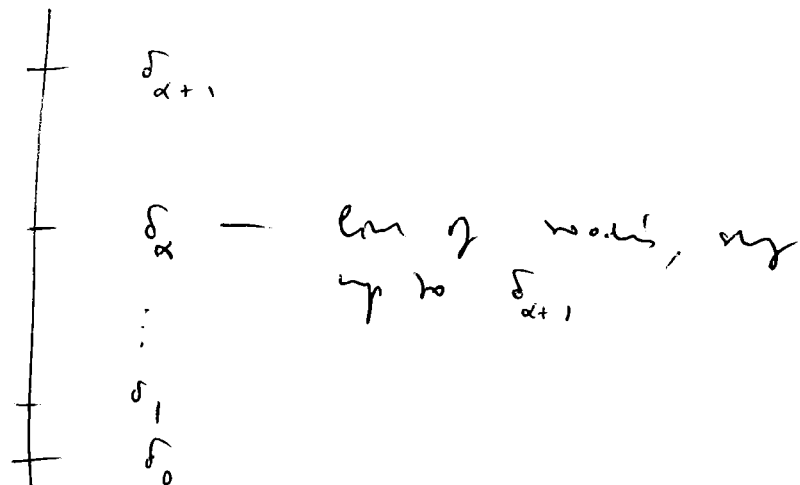 δ_{α+1}
δ_α — lim of woodins,
up to δ_{α+1}
⋮
δ_1
δ_0